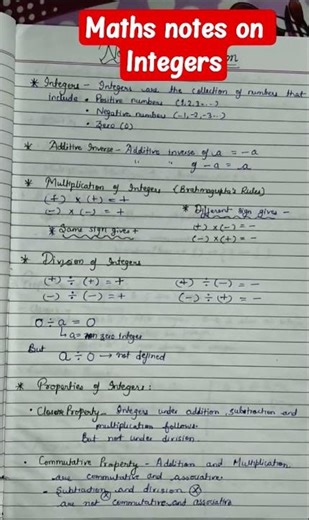 Maths notes on
Integers
* Integers - Integers are the collection of numbers that
include • Positive numbers (1,2,3....)
• Negative numbers (-1,-2,-3...)
• Zero (0)
* Additive Inverse - Additive inverse of a = -a
" " of -a = a
* Multiplication of Integers (Brahmagupta's Rules)
(+) x (+) = +
(-) x (-) = +
* Same sign gives +
* Different sign gives -
(+) x (-) = -
(-) x (+) = -
* Division of Integers
(+) ÷ (+) = + (+) ÷ (-) = -
(-) ÷ (-) = + (-) ÷ (+) = -
0 ÷ a = 0
↳ a = non zero integer
But a ÷ 0 → not defined
* Properties of Integers:
• Closure Property - Integers under addition, subtraction and
multiplication follows
But not under division.
• Commutative Property - Addition and Multiplication
are commutative and associative
- Subtraction and division
are not commutative and associative